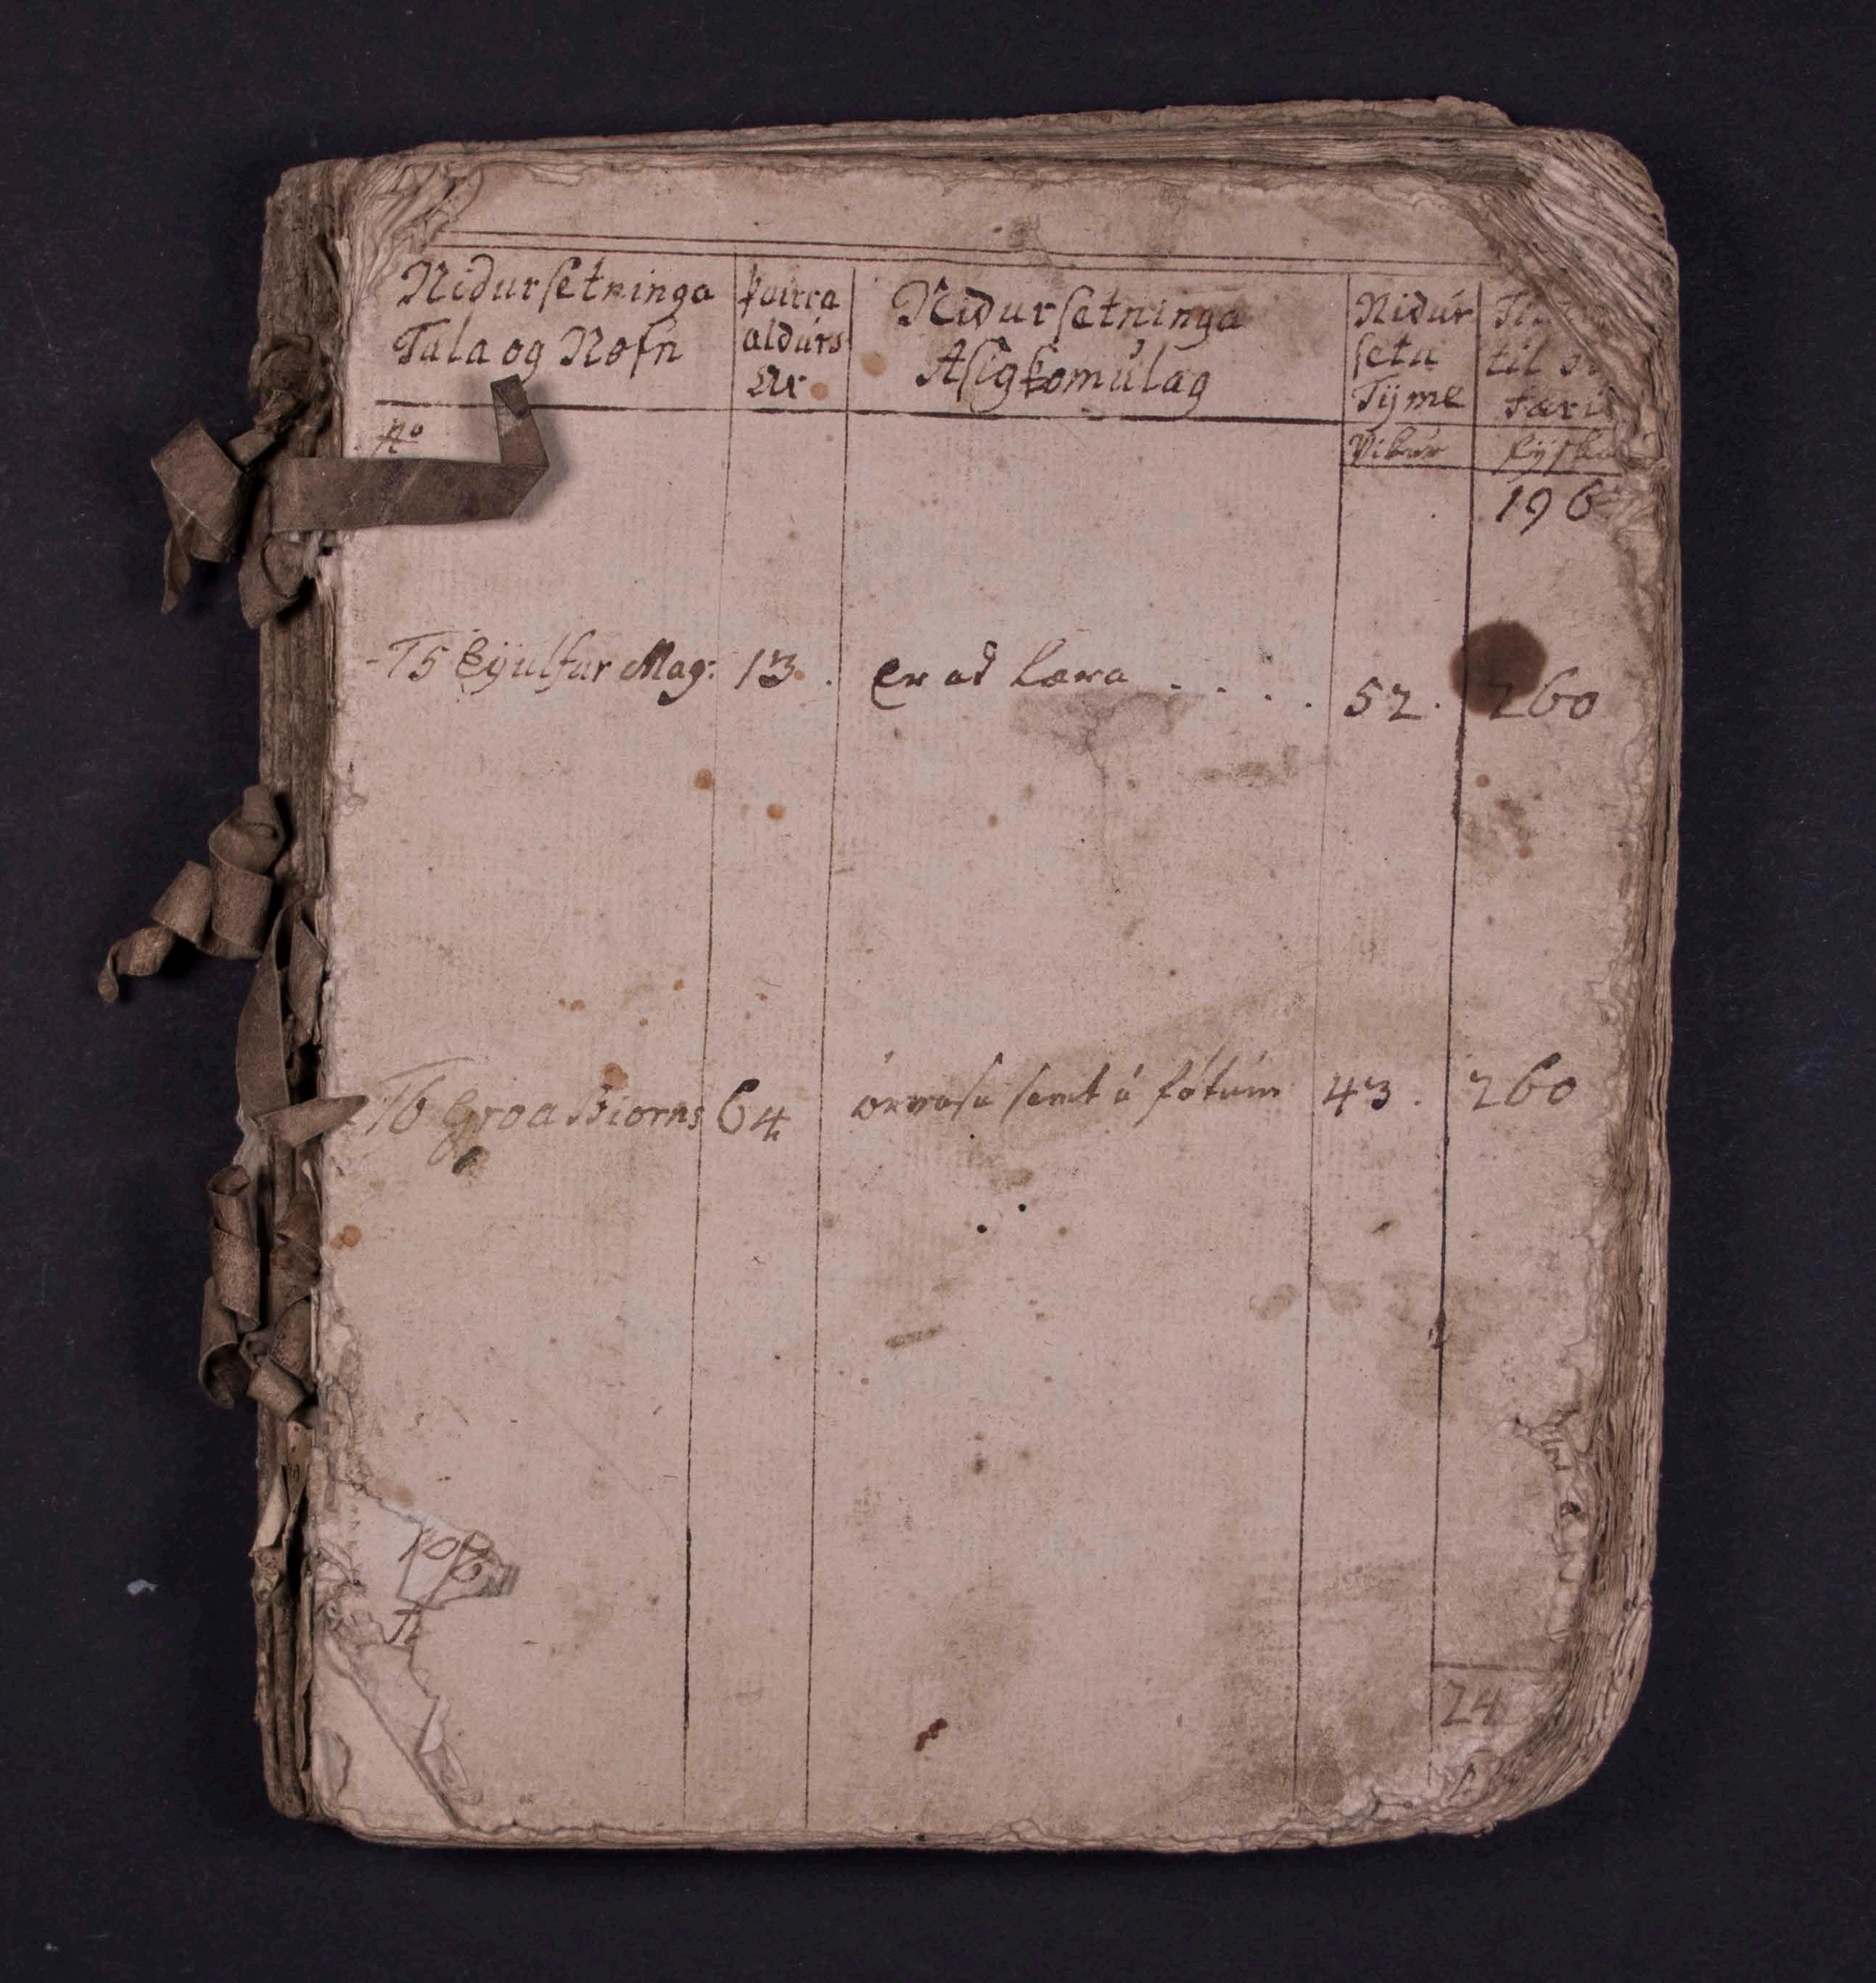 Nidursetninga
Tala og Nöfn
þeirra
aldurs
Ar
Nidursetninga
Asigkomulag
Nidur
setu
Tijme
til
færi
No
Vikur
fiska
196
15 Eyulfur Mag: 13. er ad læra . . . . . 52. 260
16 Groa Biorns 64 örvasa samt á fótum 43. 260
24